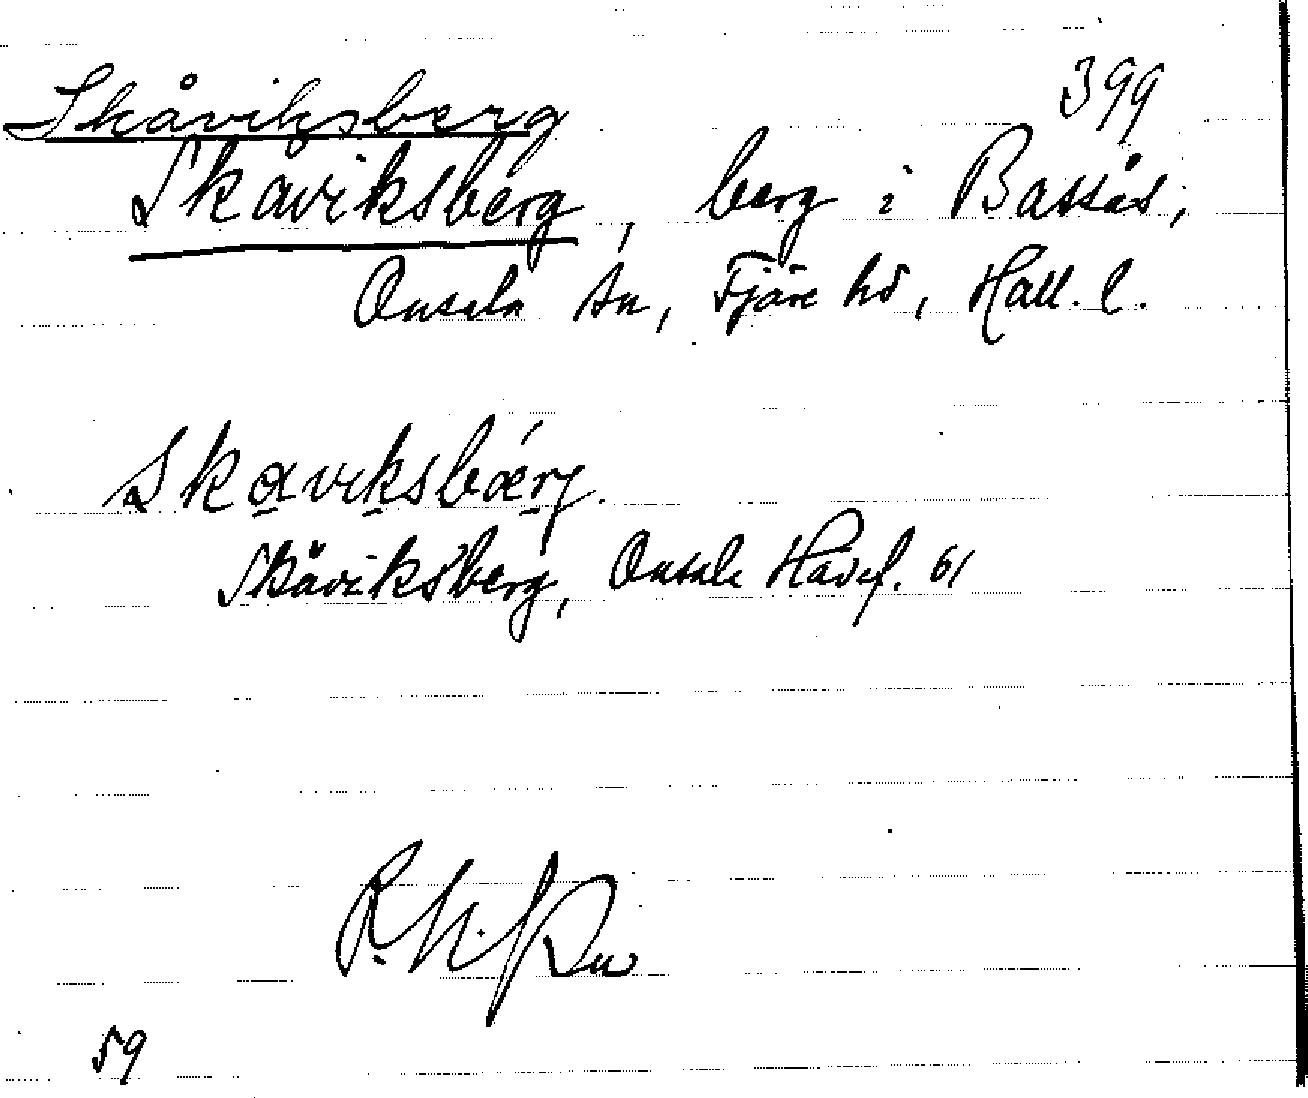 Skåviksberg
399
Skåviksberg, berg i Bassås,
Onsala sn, Fjäre hd, Hall. l.
Skaviksbærg.
Skåviksberg, Onsala Havsf. 61
59